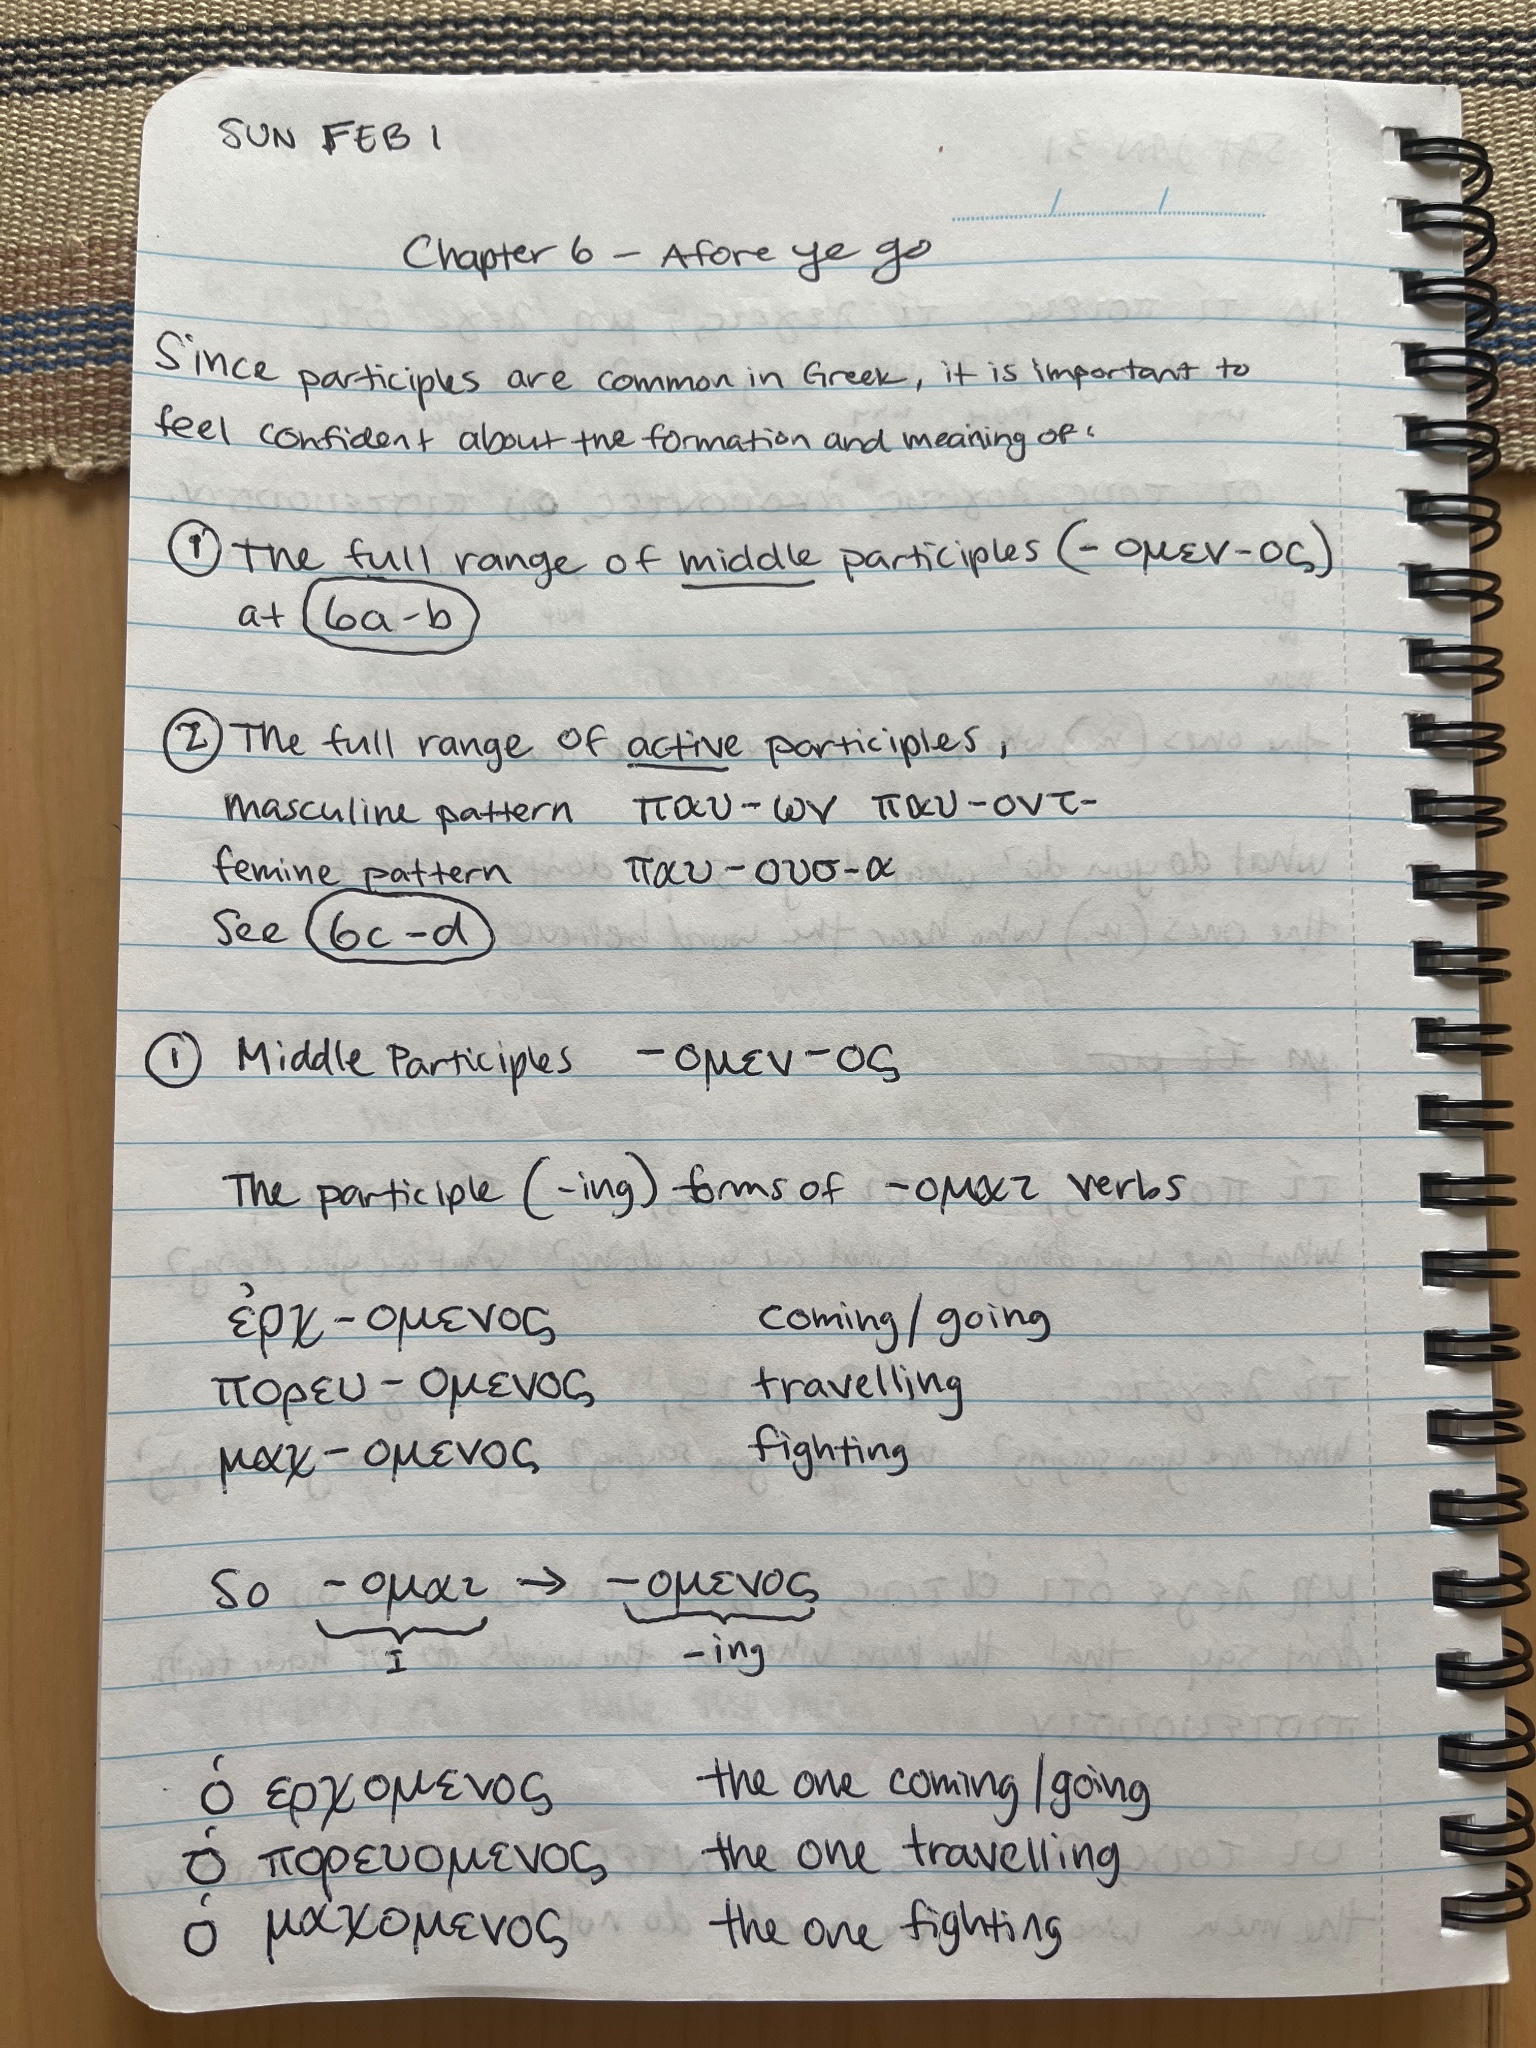 SUN FEB 1
Chapter 6 – Afore ye go
Since participles are common in Greek, it is important to
feel confident about the formation and meaning of:
① The full range of middle participles (-ομεν-ος)
at 6a-b
② The full range of active participles,
masculine pattern παυ-ων παυ-οντ-
femine pattern παυ-ουσ-α
See 6c-d
① Middle Participles -ομεν-ος
The participle (-ing) forms of -ομαι verbs
ἐρχ-ομενος coming/going
πορευ-ομενος travelling
μαχ-ομενος fighting
So -ομαι → -ομενος
I -ing
ὁ ερχομενος the one coming/going
ὁ πορευομενος the one travelling
ὁ μαχομενος the one fighting